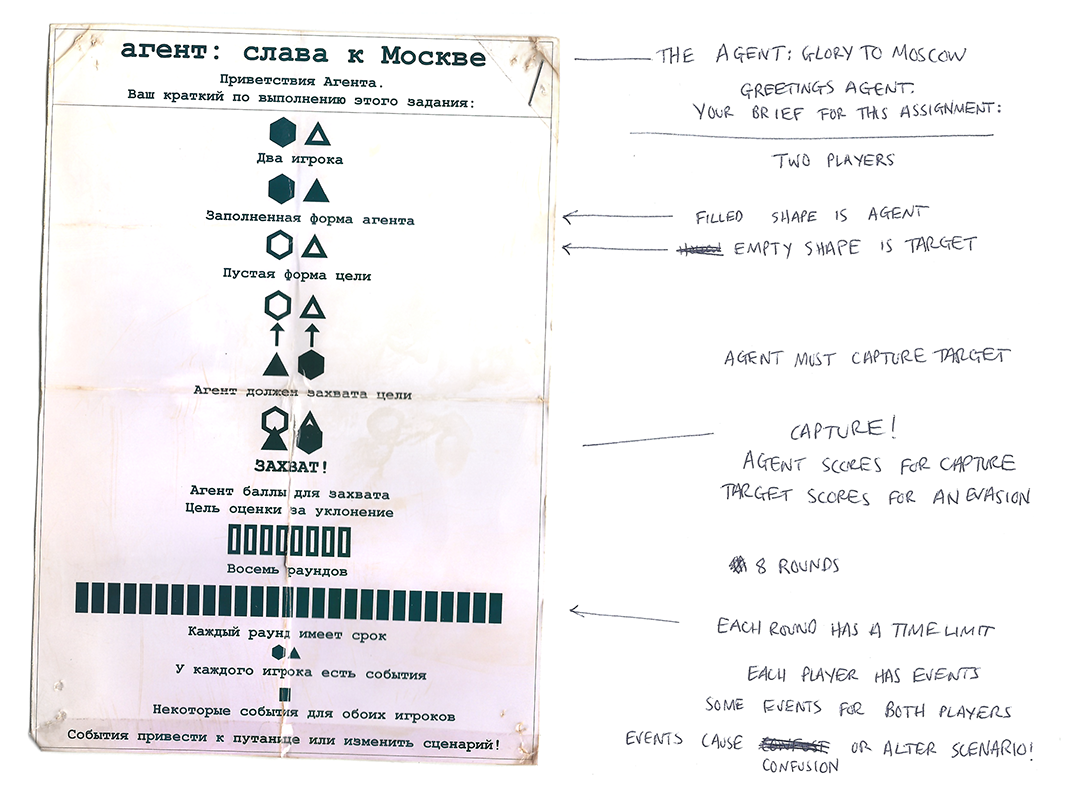 агент: слава к Москве
Приветствия Агента.
Ваш краткий по выполнению этого задания:
Два игрока
Заполненная форма агента
Пустая форма цели
Агент должен захвата цели
ЗАХВАТ!
Агент баллы для захвата
Цель оценки за уклонение
Восемь раундов
Каждый раунд имеет срок
У каждого игрока есть события
Некоторые события для обоих игроков
События привести к путанице или изменить сценарий!
THE AGENT: GLORY TO MOSCOW
GREETINGS AGENT.
YOUR BRIEF FOR THIS ASSIGNMENT:
TWO PLAYERS
FILLED SHAPE IS AGENT
EMPTY SHAPE IS TARGET
AGENT MUST CAPTURE TARGET
CAPTURE!
AGENT SCORES FOR CAPTURE
TARGET SCORES FOR AN EVASION
8 ROUNDS
EACH ROUND HAS A TIME LIMIT
EACH PLAYER HAS EVENTS
SOME EVENTS FOR BOTH PLAYERS
EVENTS CAUSE CONFUSE OR ALTER SCENARIO!
CONFUSION